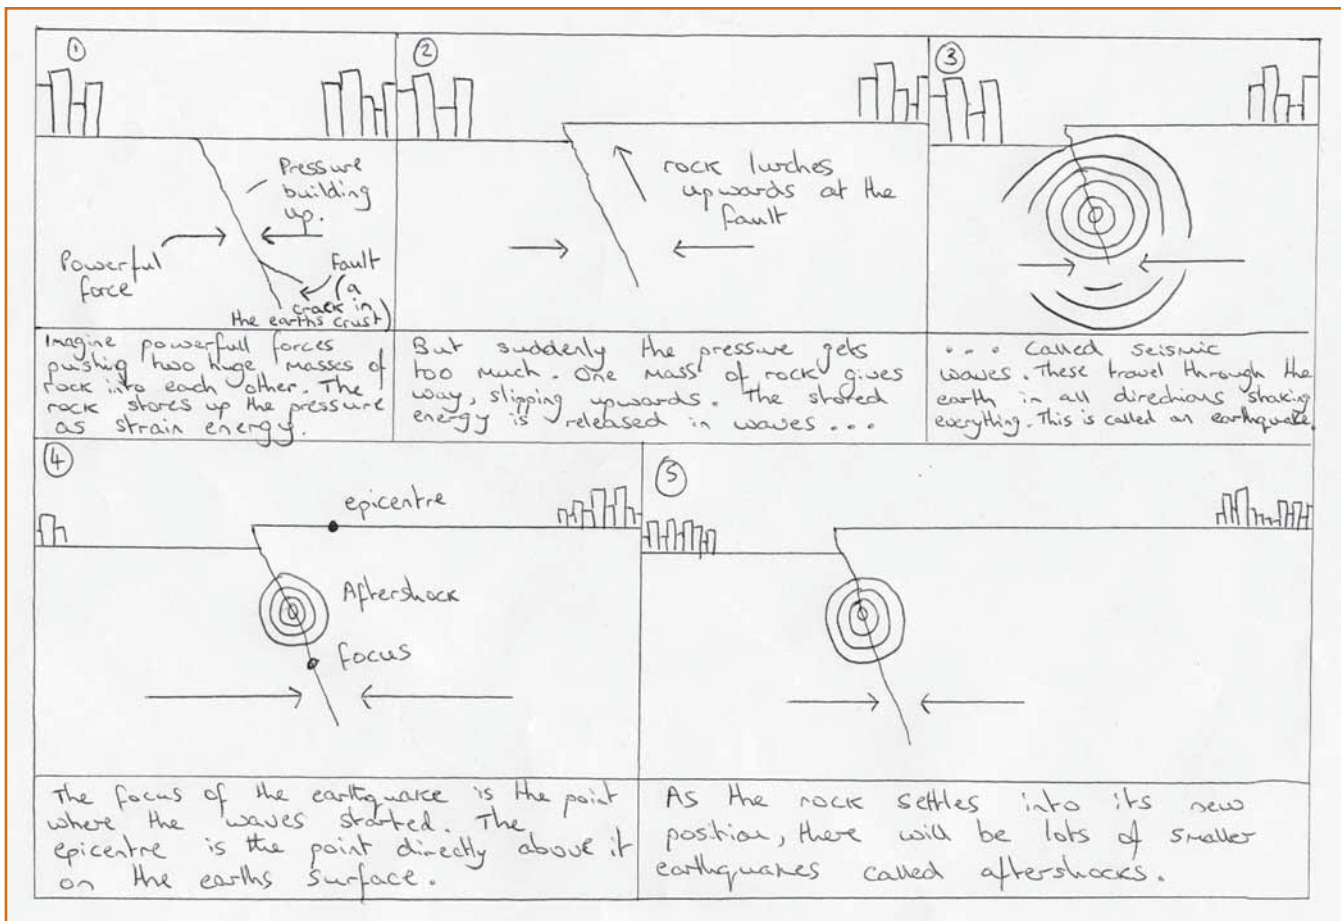 1
Pressure
building
up.
Powerful
force
Fault
(a
crack in
the earths crust)
Imagine powerfull forces
pushing two huge masses of
rock into each other. The
rock stores up the pressure
as strain energy.
2
rock lurches
upwards at the
fault
But suddenly the pressure gets
too much. One mass of rock gives
way, slipping upwards. The stored
energy is released in waves ...
3
.... Called seismic
waves. These travel through the
earth in all directions shaking
everything. This is called an earthquake
4
epicentre
Aftershock
focus
The focus of the earthquake is the point
where the waves started. The
epicentre is the point directly above it
on the earths surface.
5
As the rock settles into its new
position, there will be lots of smaller
earthquakes called aftershocks.